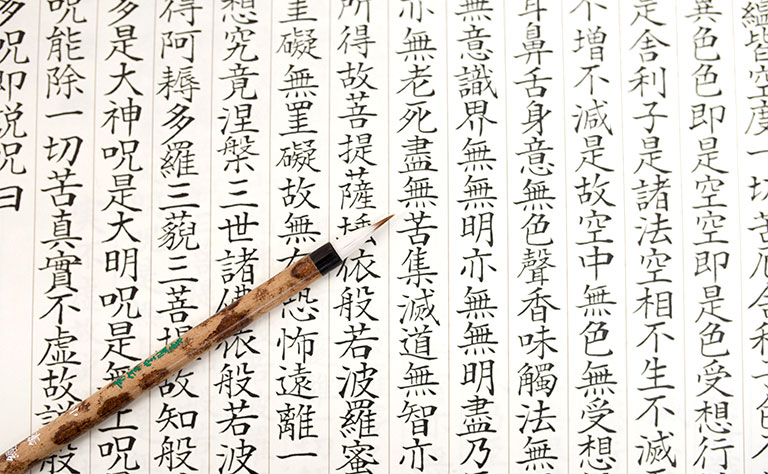 蘊皆空度一切苦厄舍利子色
異色色即是空空即是色受想行
是舍利子是諸法空相不生不滅
不增不減是故空中無色無受想
耳鼻舌身意無色聲香味觸法無
無意識界無無明亦無無明盡乃
亦無老死盡無苦集滅道無智亦
所得故菩提薩埵依般若波羅蜜
罣礙無罣礙故無有恐怖遠離一
想究竟涅槃三世諸佛依般若波
得阿耨多羅三藐三菩提故知般
多是大神呪是大明呪是無上呪
呪能除一切苦真實不虛故説般
多呪即説呪曰